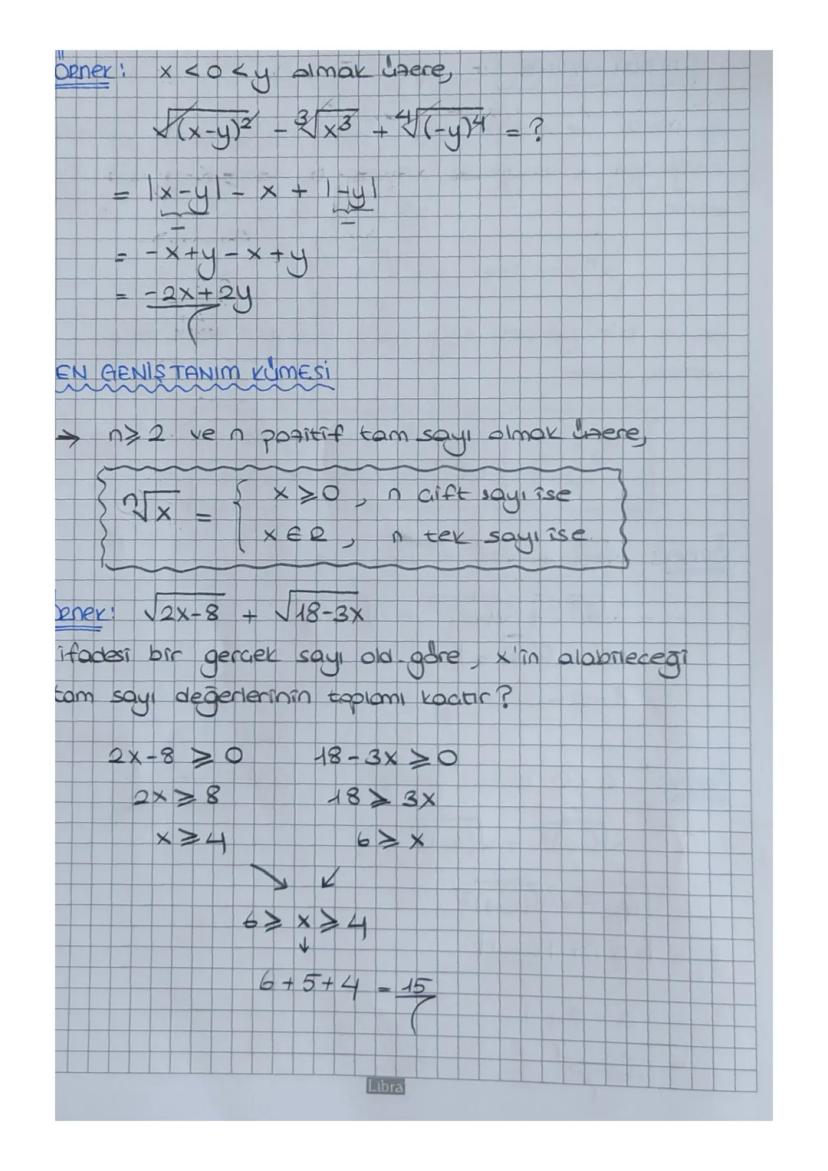 Örnek: x < 0 < y olmak üzere,
√(x-y)² - ³√x³ + ⁴√(-y)⁴ = ?
= |x-y| - x + |-y|
- -
= -x+y-x+y
= -2x+2y
EN GENİŞ TANIM KÜMESİ
→ n≥2 ve n pozitif tam sayı olmak üzere,
ⁿ√x = { x≥0, n çift sayı ise
x∈R, n tek sayı ise
Örnek: √2x-8 + √18-3x
ifadesi bir gerçek sayı old. göre, x'in alabileceği
tam sayı değerlerinin toplamı kaçtır?
2x-8 ≥ 0 18-3x ≥ 0
2x ≥ 8 18 ≥ 3x
x ≥ 4 6 ≥ x
↘ ↙
6 ≥ x ≥ 4
↓
6+5+4 = 15
Libra